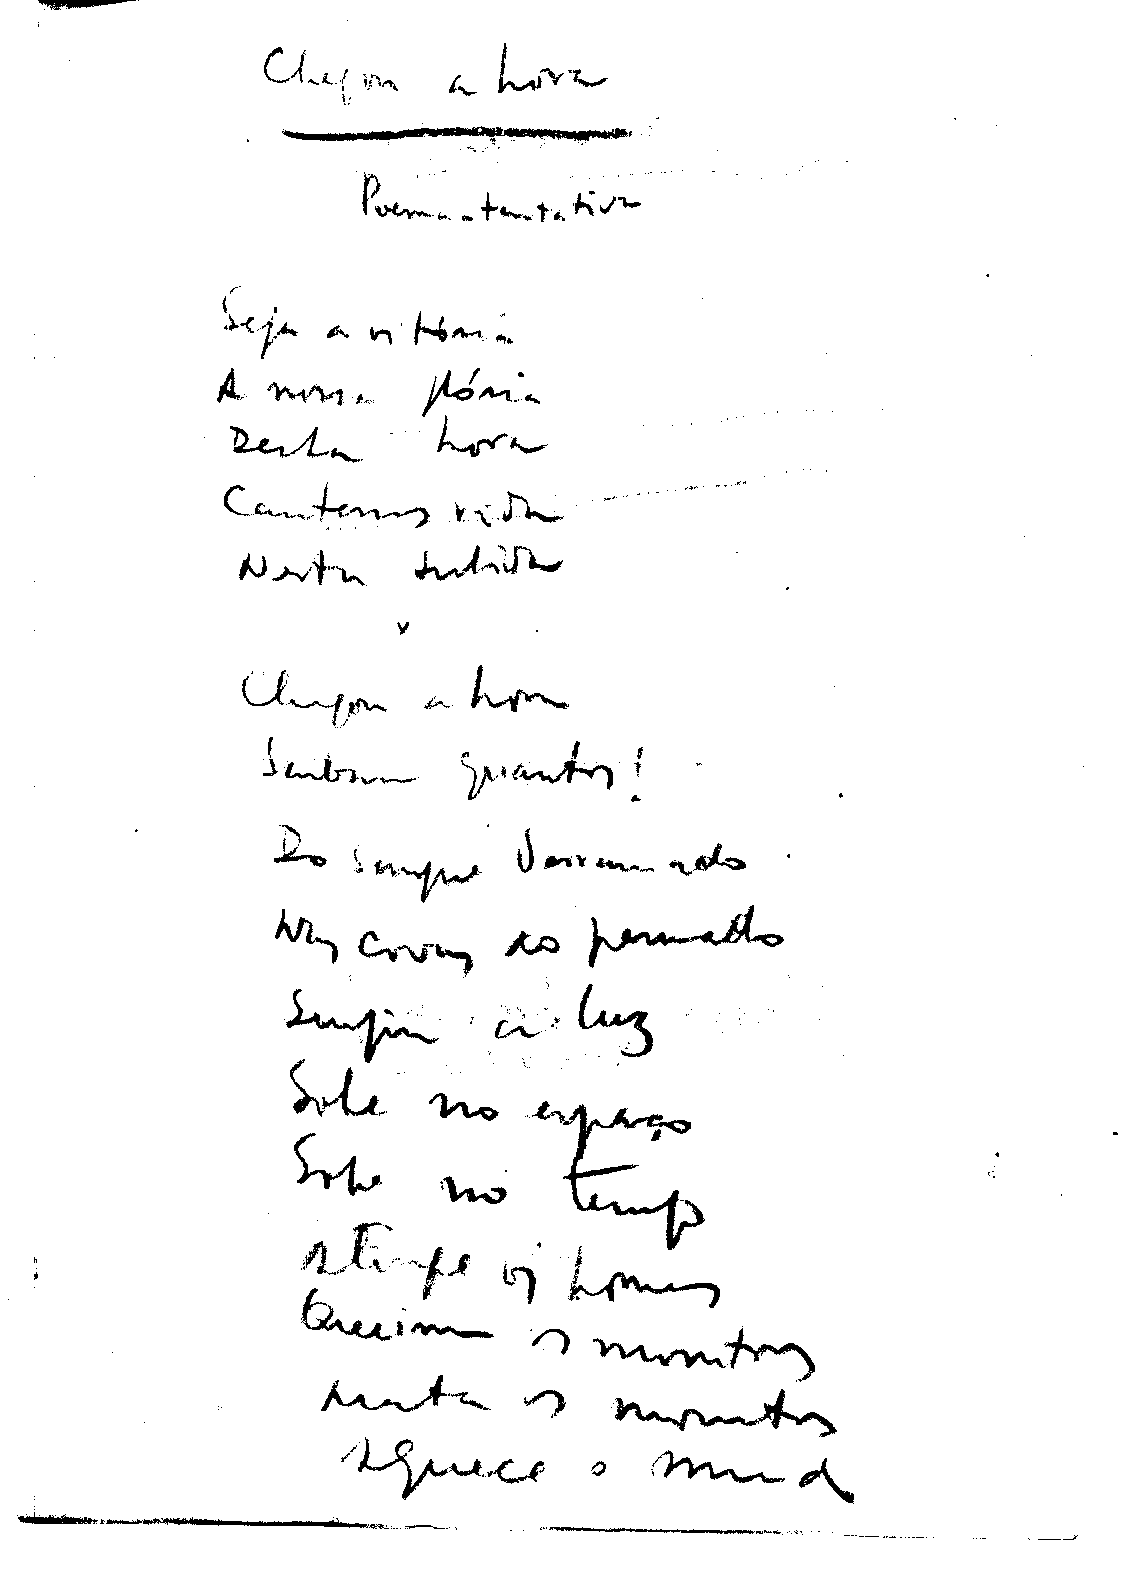 Chegou a hora
Poema-tentativa
Seja a vitória
A nossa glória
Desta hora
Cantemos vida
Nesta subida
Chegou a hora
Saibam quantos!
Do sangue derramado
Nas covas do passado
Surgiu a luz
Sobe no espaço
Sobe no tempo
Atinge os homens
Queima os monstros
Mata os monstros
Aquece o mund